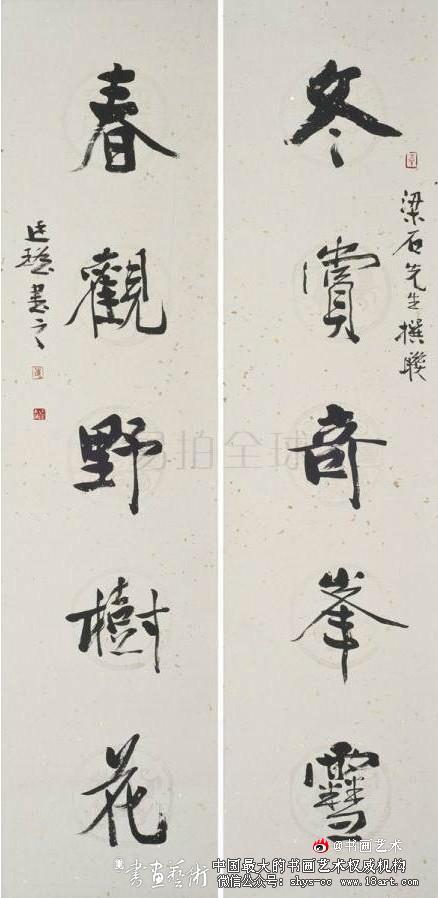 冬賞奇峯雪
梁石先生撰聯
春觀野樹花
書之
易拍全球
@书画艺术
書畫藝術
中国最大的书画艺术权威机构
微信公众号: shys-cc www.18art.com